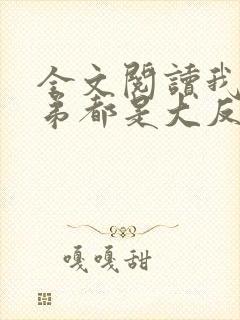 全文閱讀我
弟都是大反
嘎嘎甜